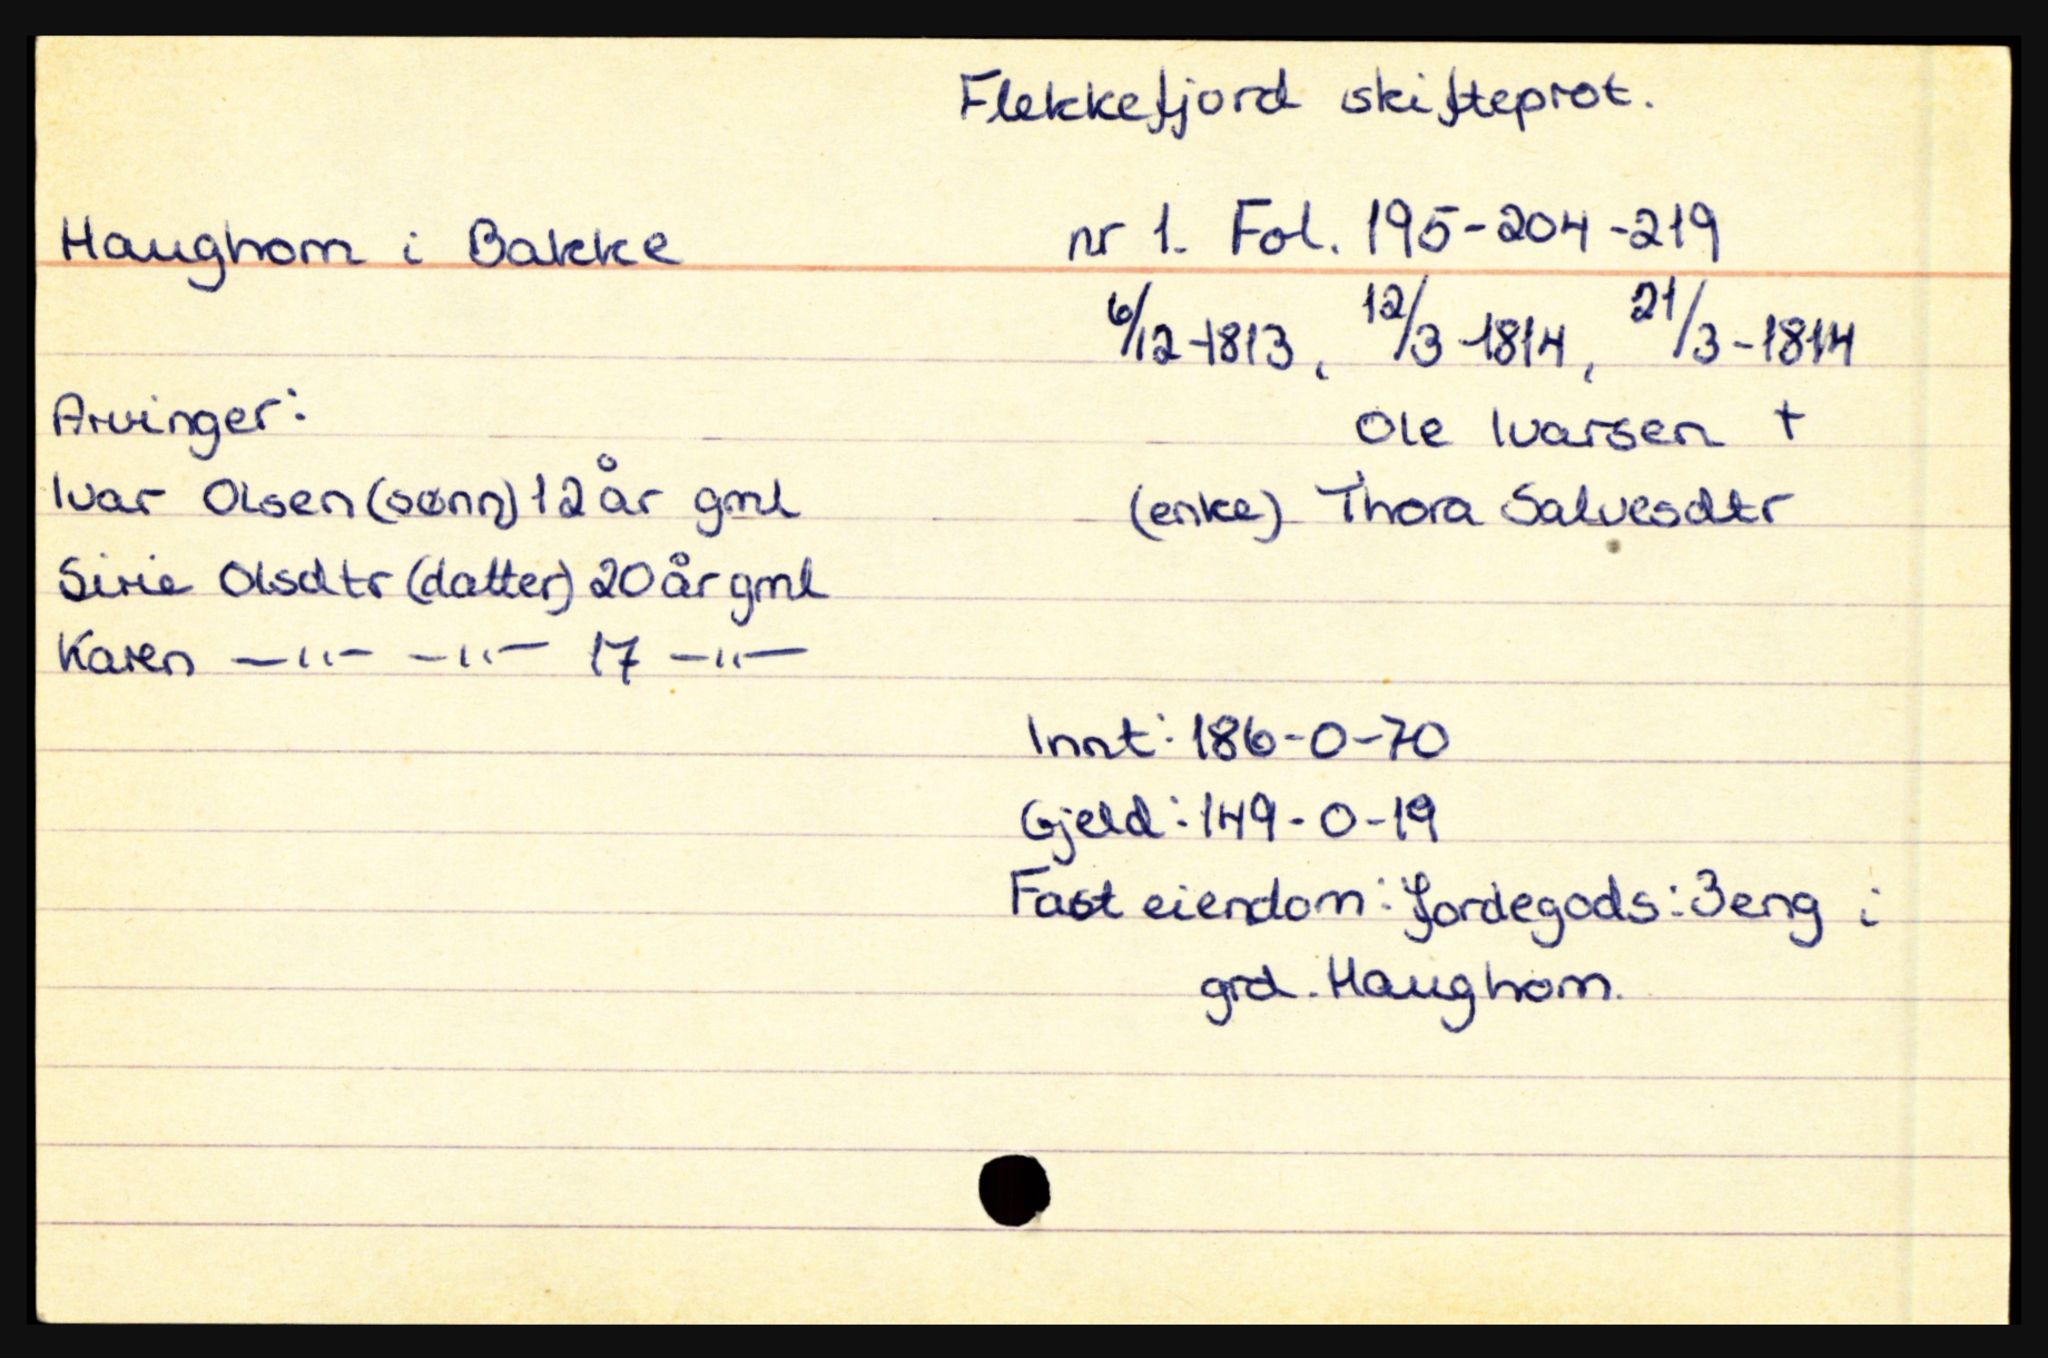 Flekkefjord skifteprot.
Haughom i Bakke nr 1. Fol. 195-204-219
6/12-1813, 12/3-1814, 21/3-1814
Arvinger: Ole Ivarsen +
Ivar Olsen (sønn) 12 år gml (enke) Thora Salvesdtr
Sirie Olsdtr (datter) 20 år gml
Karen —"— —"— 17 —"—
Innt: 186-0-70
Gjeld: 149-0-19
Fast eiendom: Jordegods: 3 eng i
grd. Haughom.